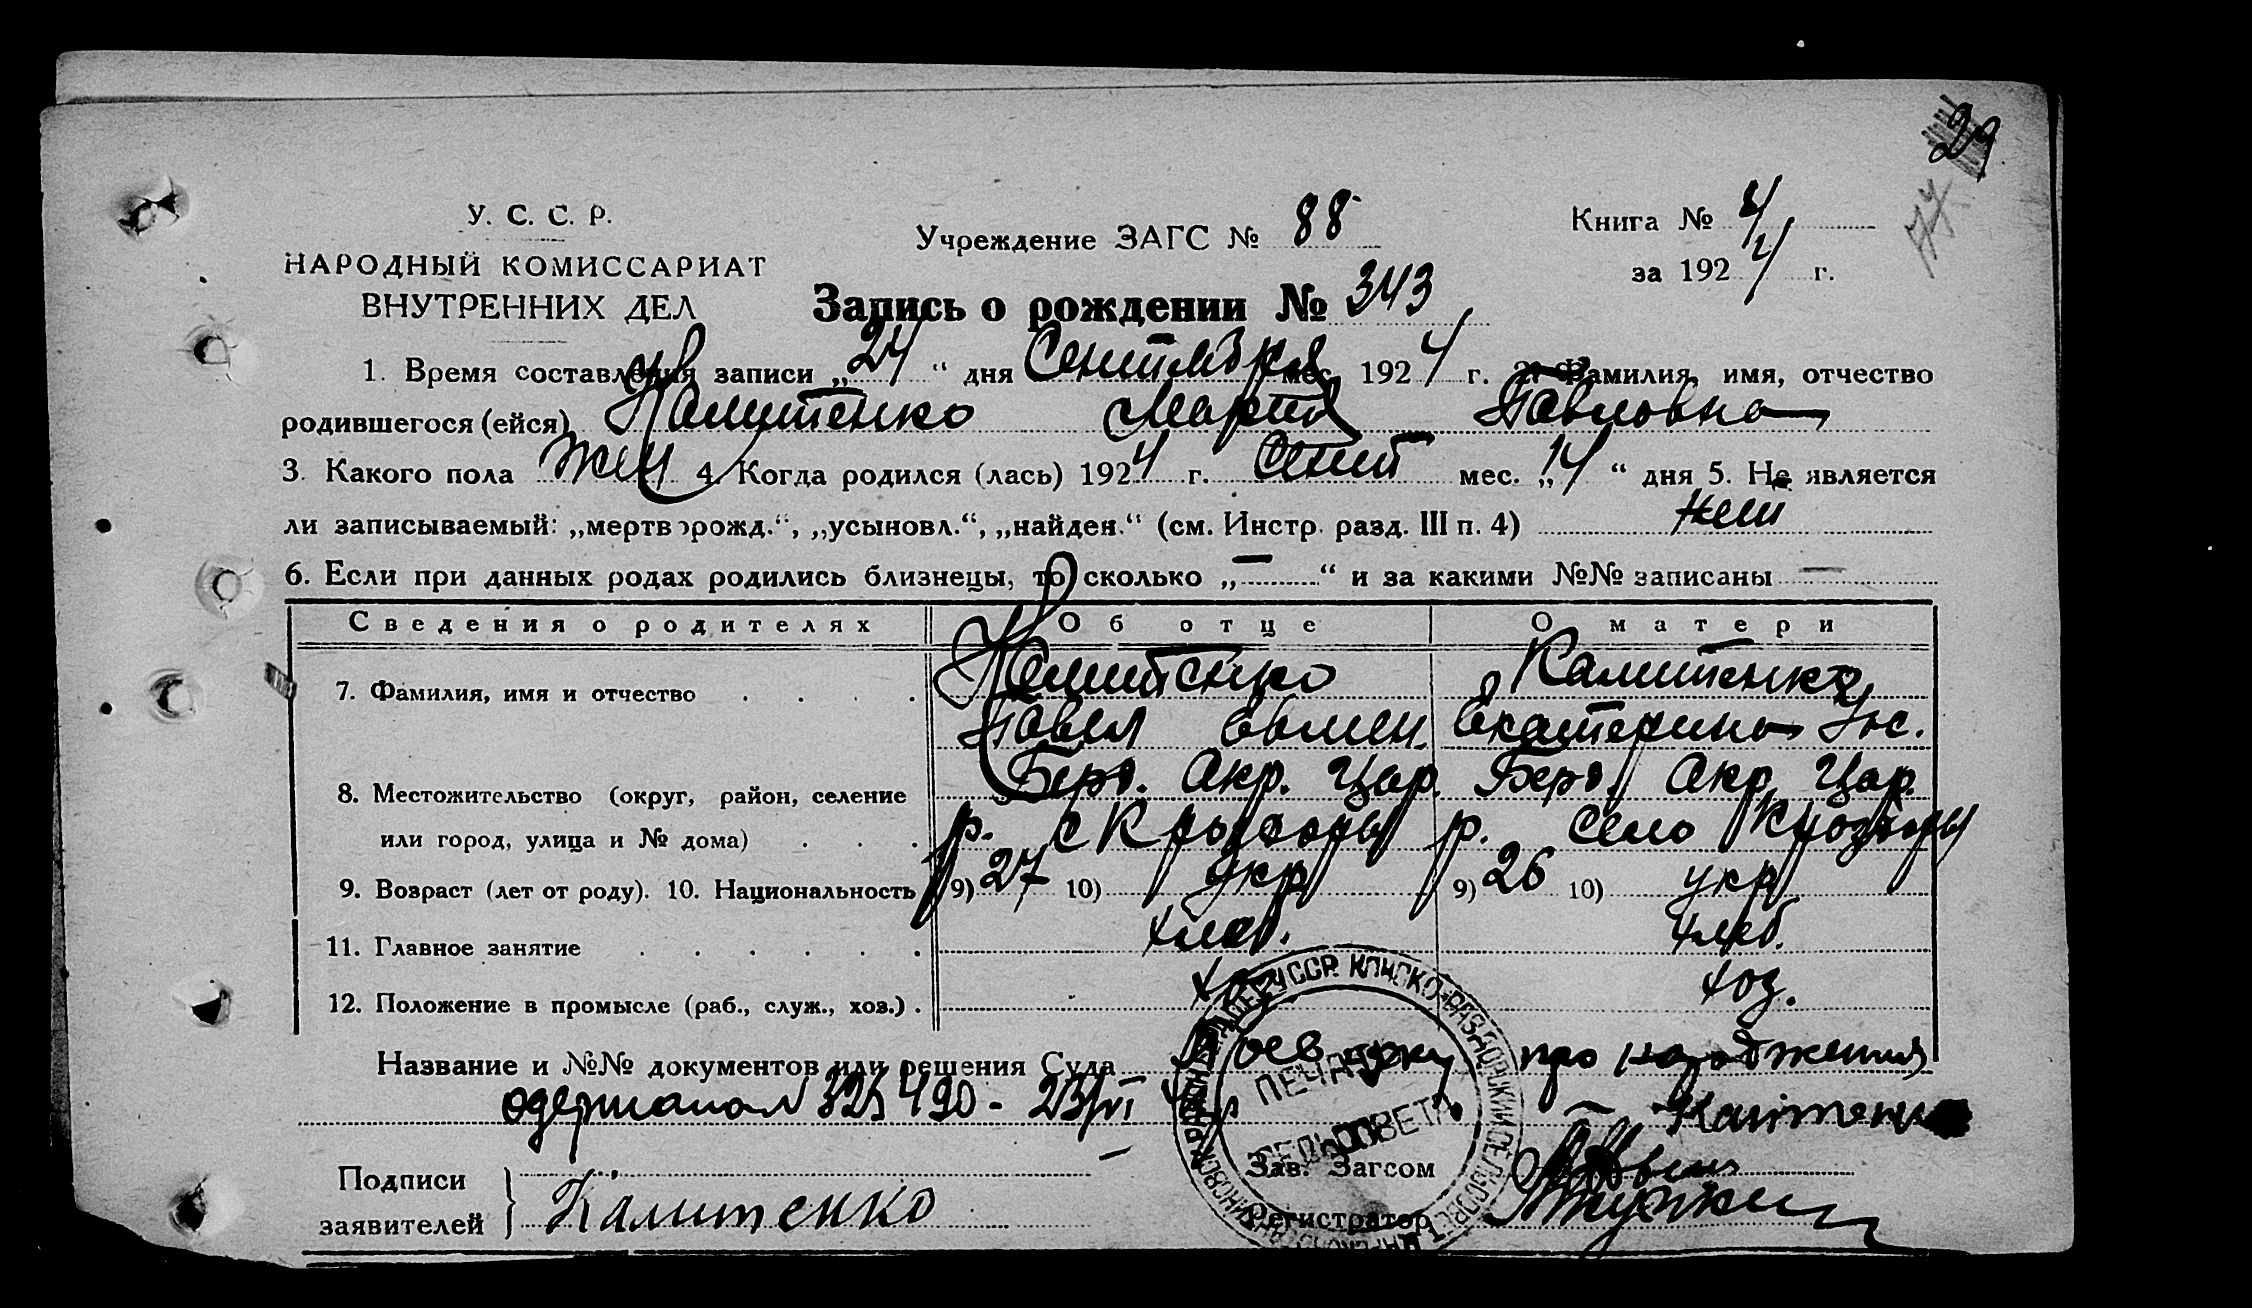 29
У. С. С. Р.
НАРОДНЫЙ КОМИССАРИАТ
ВНУТРЕННИХ ДЕЛ
Учреждение ЗАГС № 88
Книга № 4
за 1924 г.
Запись о рождении № 343
1. Время составления записи „24“ дня мес. 1924 г. 2. Фамилия, имя, отчество
родившегося (ейся) Калитенко Мария Павловна
3. Какого пола жен 4. Когда родился (лась) 1924 г. Сент мес. „14“ дня 5. Не является
ли записываемый: „мертворожд.“, „усыновл.“, „найден.“ (см. Инстр. разд. III п. 4)
6. Если при данных родах родились близнецы, то сколько „—“ и за какими №№ записаны —
Сведения о родителях Об отце О матери
7. Фамилия, имя и отчество Калитенко Калитенко
Павел Екатерина
8. Местожительство (округ, район, селение Берд. Окр. Цар. Берд. Окр. Цар.
или город, улица и № дома) р. с р. село
9. Возраст (лет от роду). 10. Национальность 9) 27 10) укр 9) 26 10) укр
11. Главное занятие хлеб. хлеб.
12. Положение в промысле (раб., служ., хоз.) хоз. хоз.
Название и №№ документов или решения Суда про
490 - 23/VI
Калітенко
Подписи
заявителей Калитенко
Зав. Загсом
Регистратор
УССР КОНСКО-РАЗДОРСКИЙ СЕЛЬСОВЕТ
ПЕЧАТЬ
СЕЛЬСОВЕТА